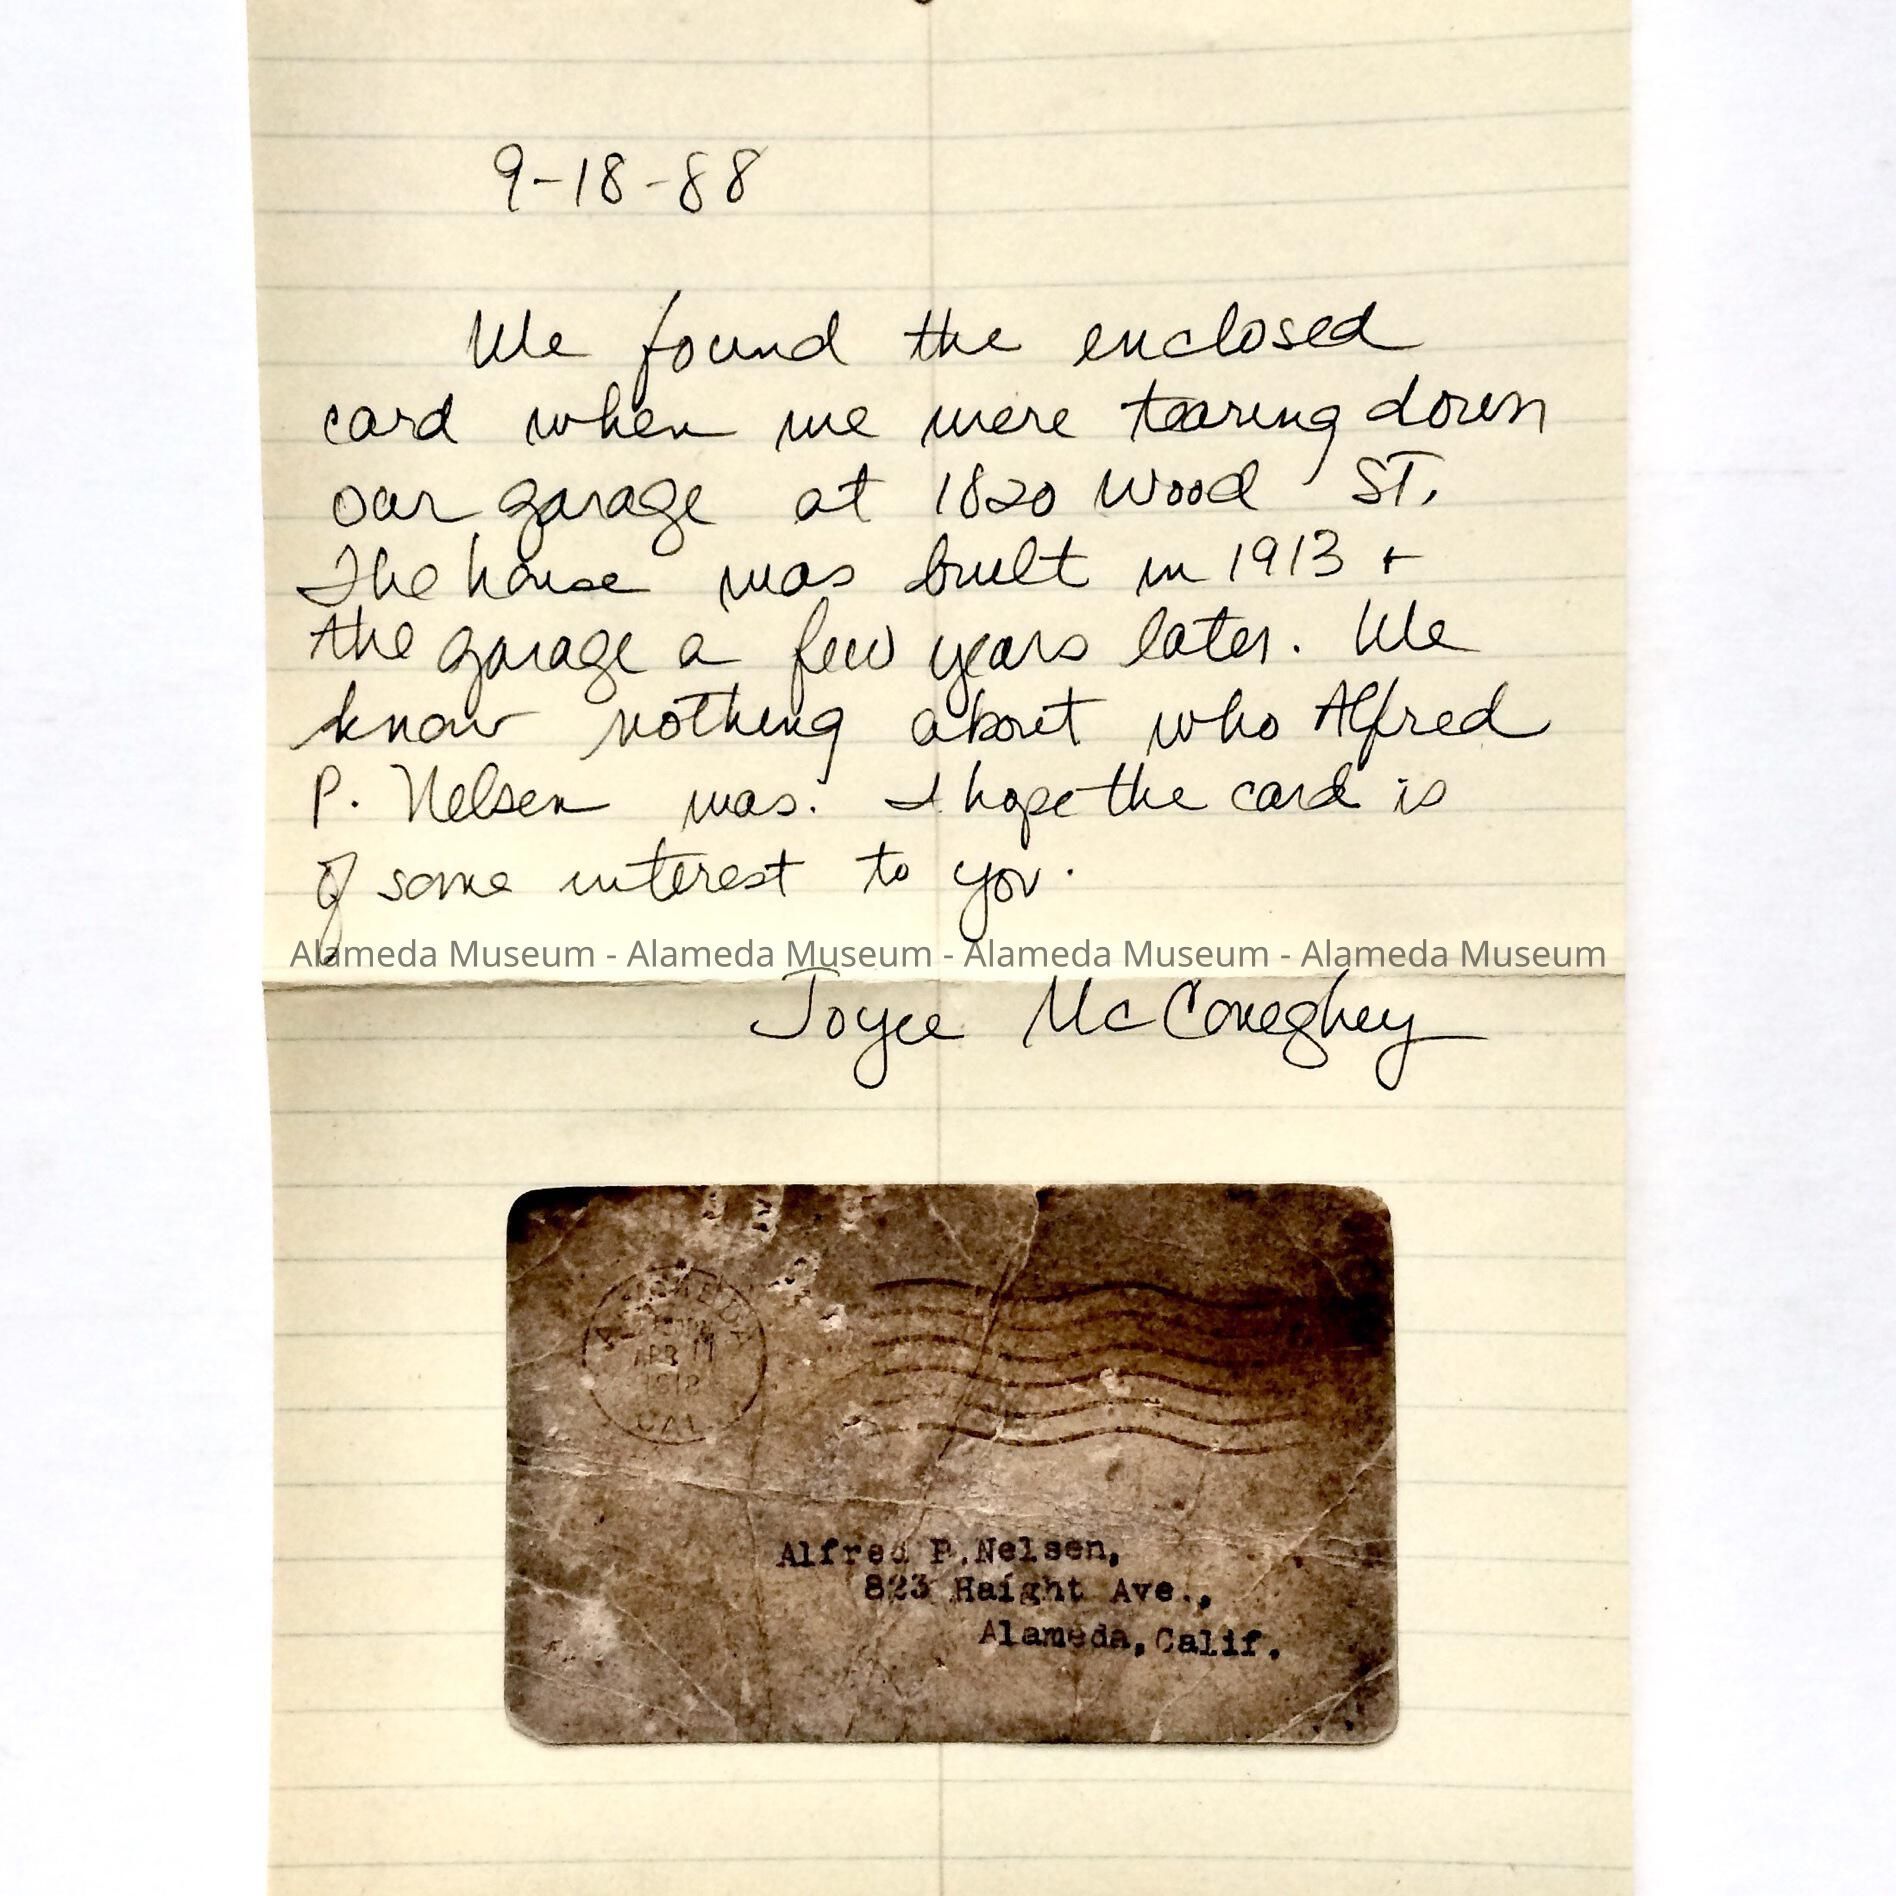 9-18-88
We found the enclosed
card when we were tearing down
our garage at 1820 Wood ST.
The house was built in 1913 +
the garage a few years later. We
know nothing about who Alfred
P. Nelsen was. I hope the card is
of some interest to you.
Alameda Museum - Alameda Museum - Alameda Museum - Alameda Museum
Joyce McConeghey
ALAMEDA
APR
1918
CAL
Alfred P.Nelsen,
823 Haight Ave.,
Alameda,Calif.